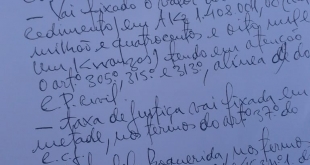 – Vai fixado o valor do
cedimento, em AKz 1.408.001,00 (um
milhão e quatrocentos e oito mil e
um, kwanzas) tendo em atenção
o artº 305º, 315º e 313º, alínea do
C.P. Civil,
– taxa de justiça vai fixada em
metade, nos termos do artº 37º do
C.C.J
Requerida, nos termos